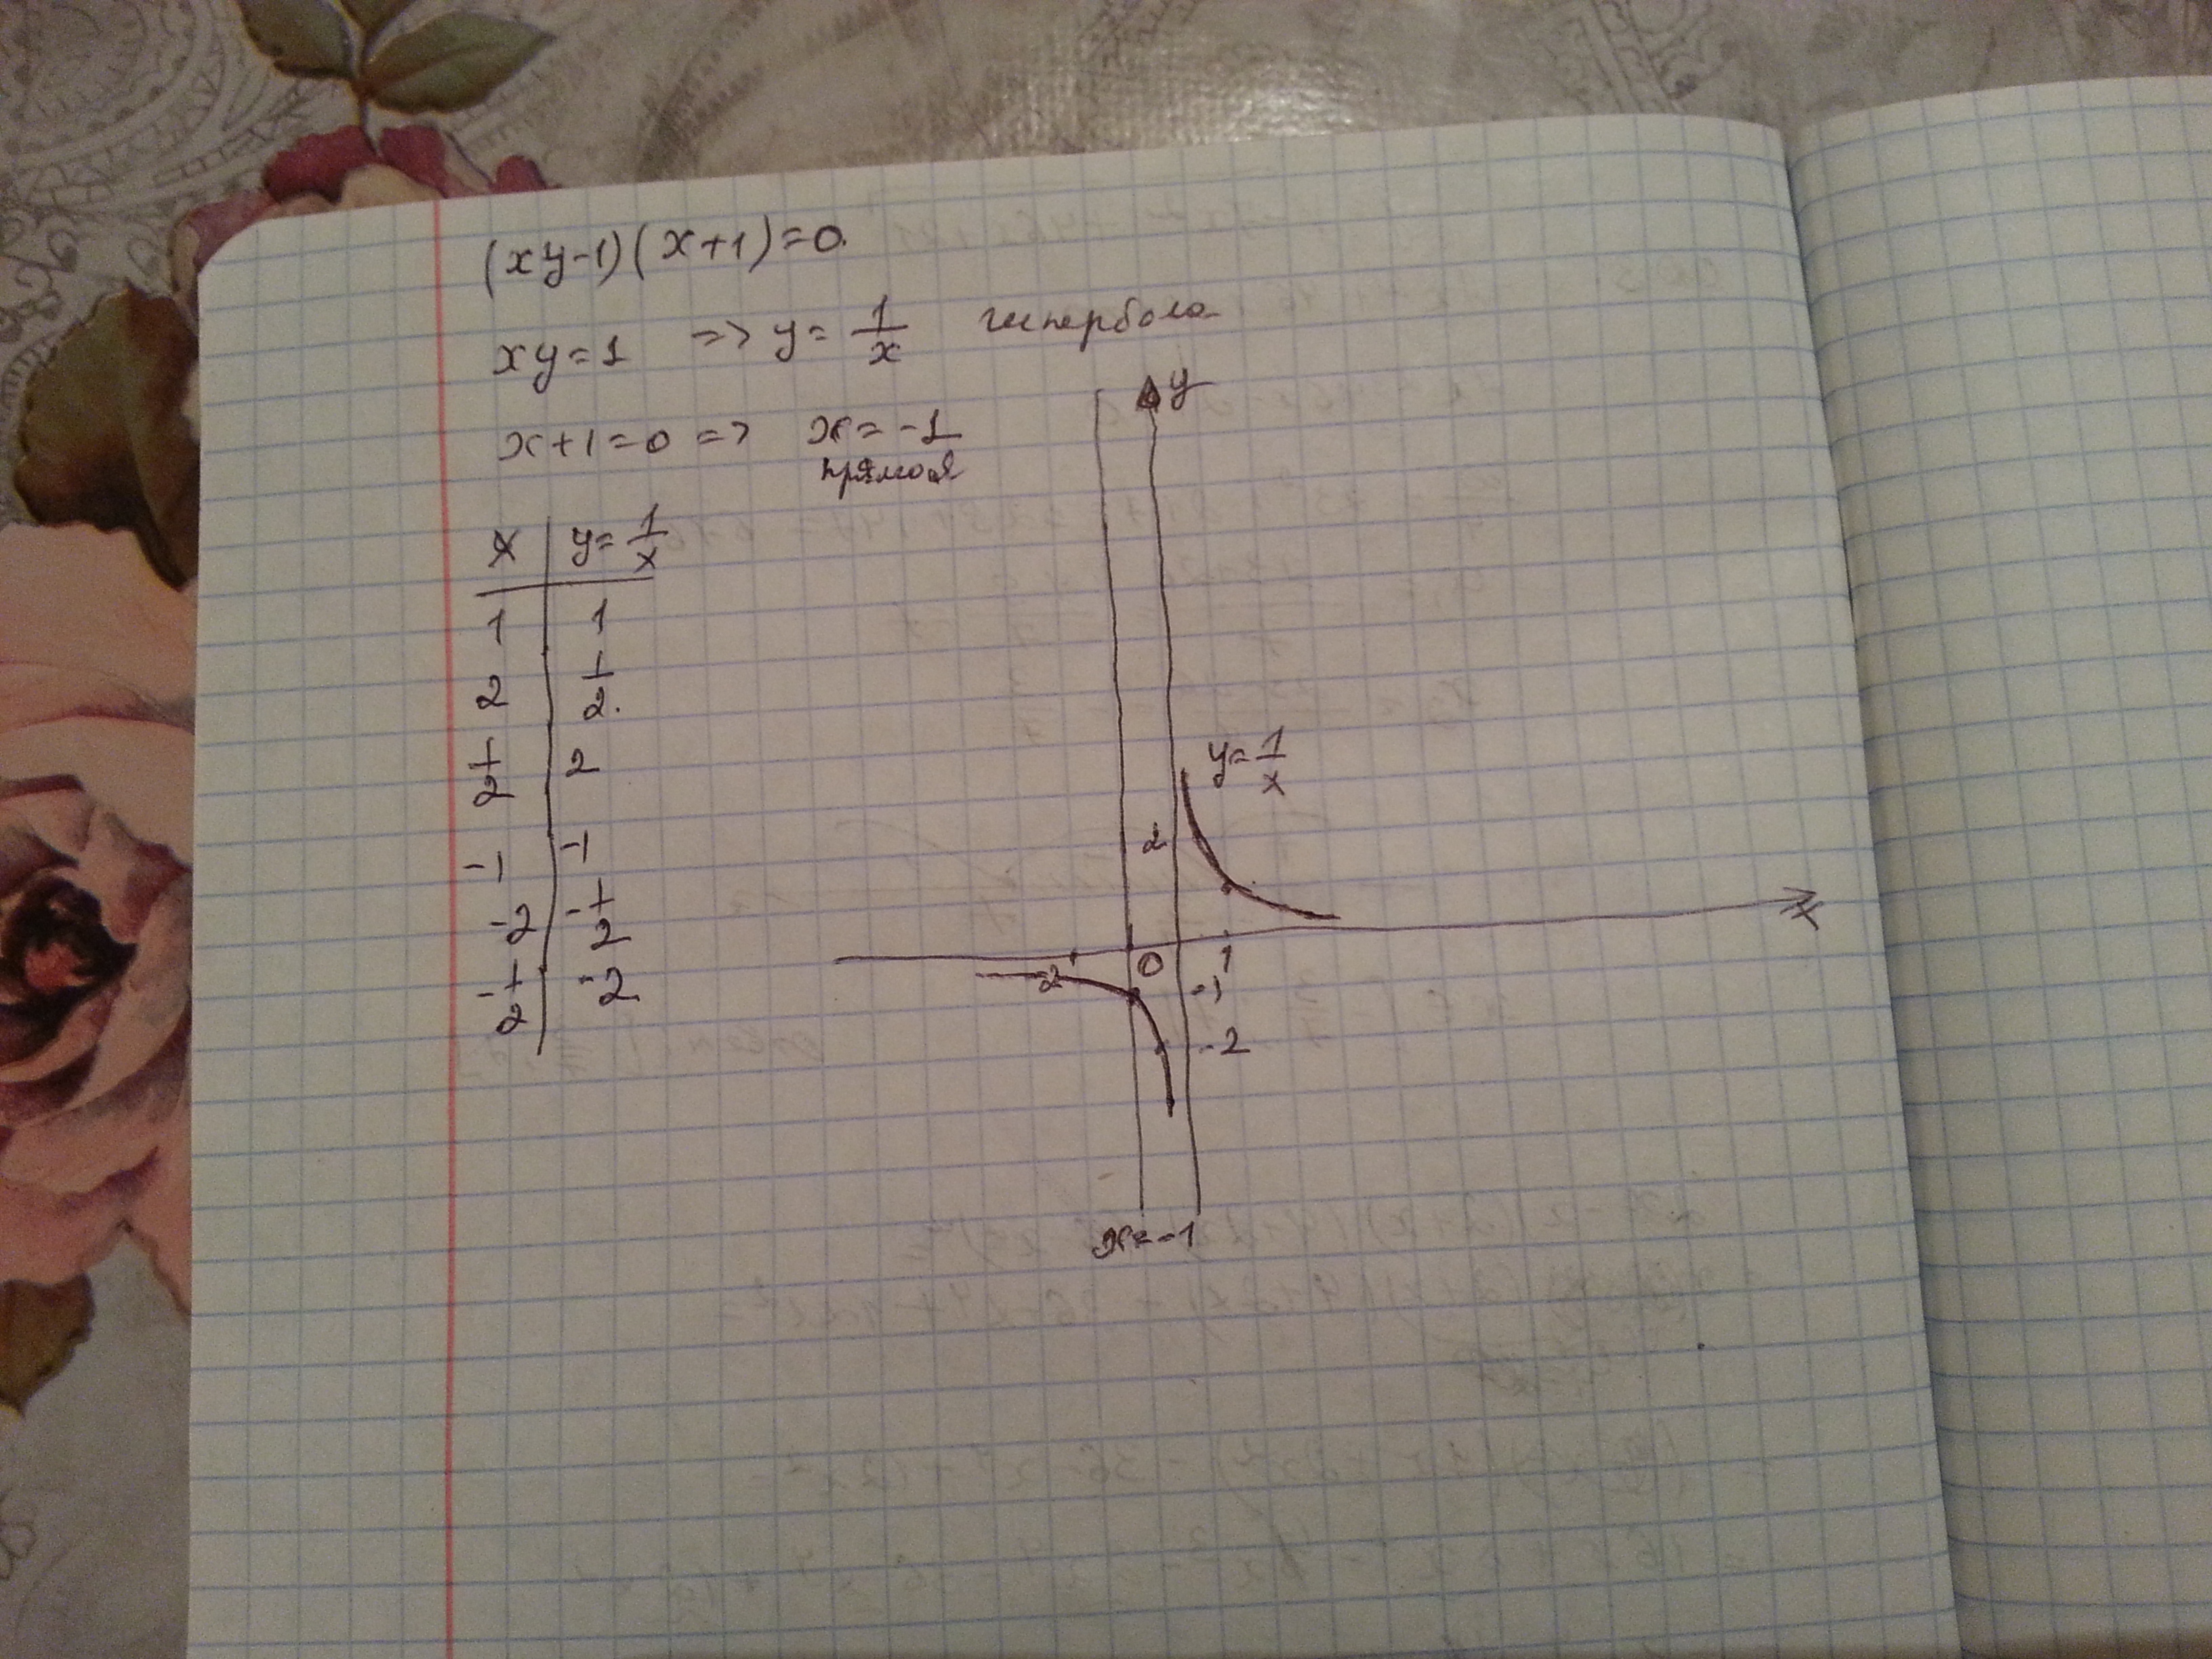 (xy-1)(x+1)=0.
xy=1 => y= 1/x гипербола
x+1=0 => x=-1
прямая
x | y= 1/x
1 | 1
2 | 1/2.
1/2 | 2
-1 | -1
-2 | -1/2
-1/2 | -2
y
y= 1/x
2
x
-2 0 1
-1
-2
x=-1